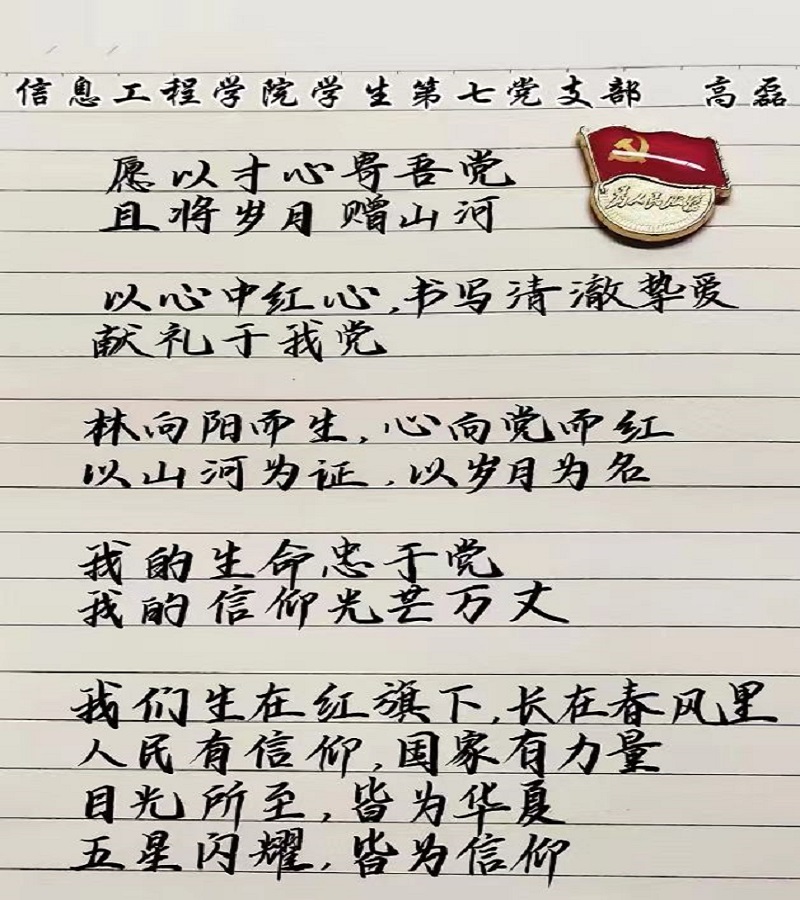 信息工程学院学生第七党支部 高磊
愿以寸心寄吾党
且将岁月赠山河
为人民服务
以心中红心,书写清澈挚爱
献礼于我党
林向阳而生,心向党而红
以山河为证,以岁月为名
我的生命忠于党
我的信仰光芒万丈
我们生在红旗下,长在春风里
人民有信仰,国家有力量
目光所至,皆为华夏
五星闪耀,皆为信仰